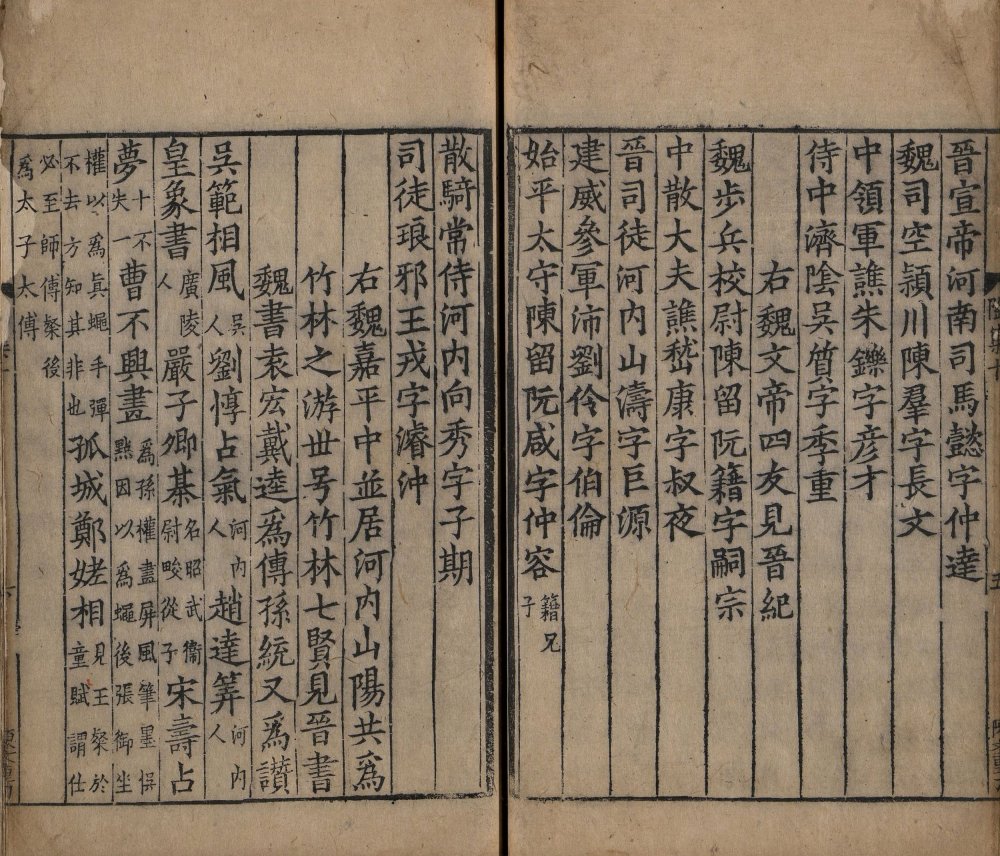 晉宣帝河南司馬懿字仲達
魏司空潁川陳羣字長文
中領軍譙朱鑠字彥才
侍中濟陰吳質字季重
右魏文帝四友見晉紀
魏步兵校尉陳留阮籍字嗣宗
中散大夫譙嵇康字叔夜
晉司徒河內山濤字巨源
建威參軍沛劉伶字伯倫
始平太守陳留阮咸字仲容籍兄子
散騎常侍河內向秀字子期
司徒琅邪王戎字濬沖
右魏嘉平中並居河內山陽共爲
竹林之游世号竹林七賢見晉書
魏書袁宏戴逵爲傳孫統又爲讃
吳範相風吳人劉惇占氣河內人趙達筭河內人
皇象書廣陵人嚴子卿棊名昭武衞尉畯從子宋壽占
夢十不失一曹不興畫爲孫權畫屏風筆墨悮點因以爲蠅後張御坐
權以爲真蠅手彈不去方知其非也孤城鄭姥相見王粲於童賦謂仕
必至師傅粲後爲太子太傅